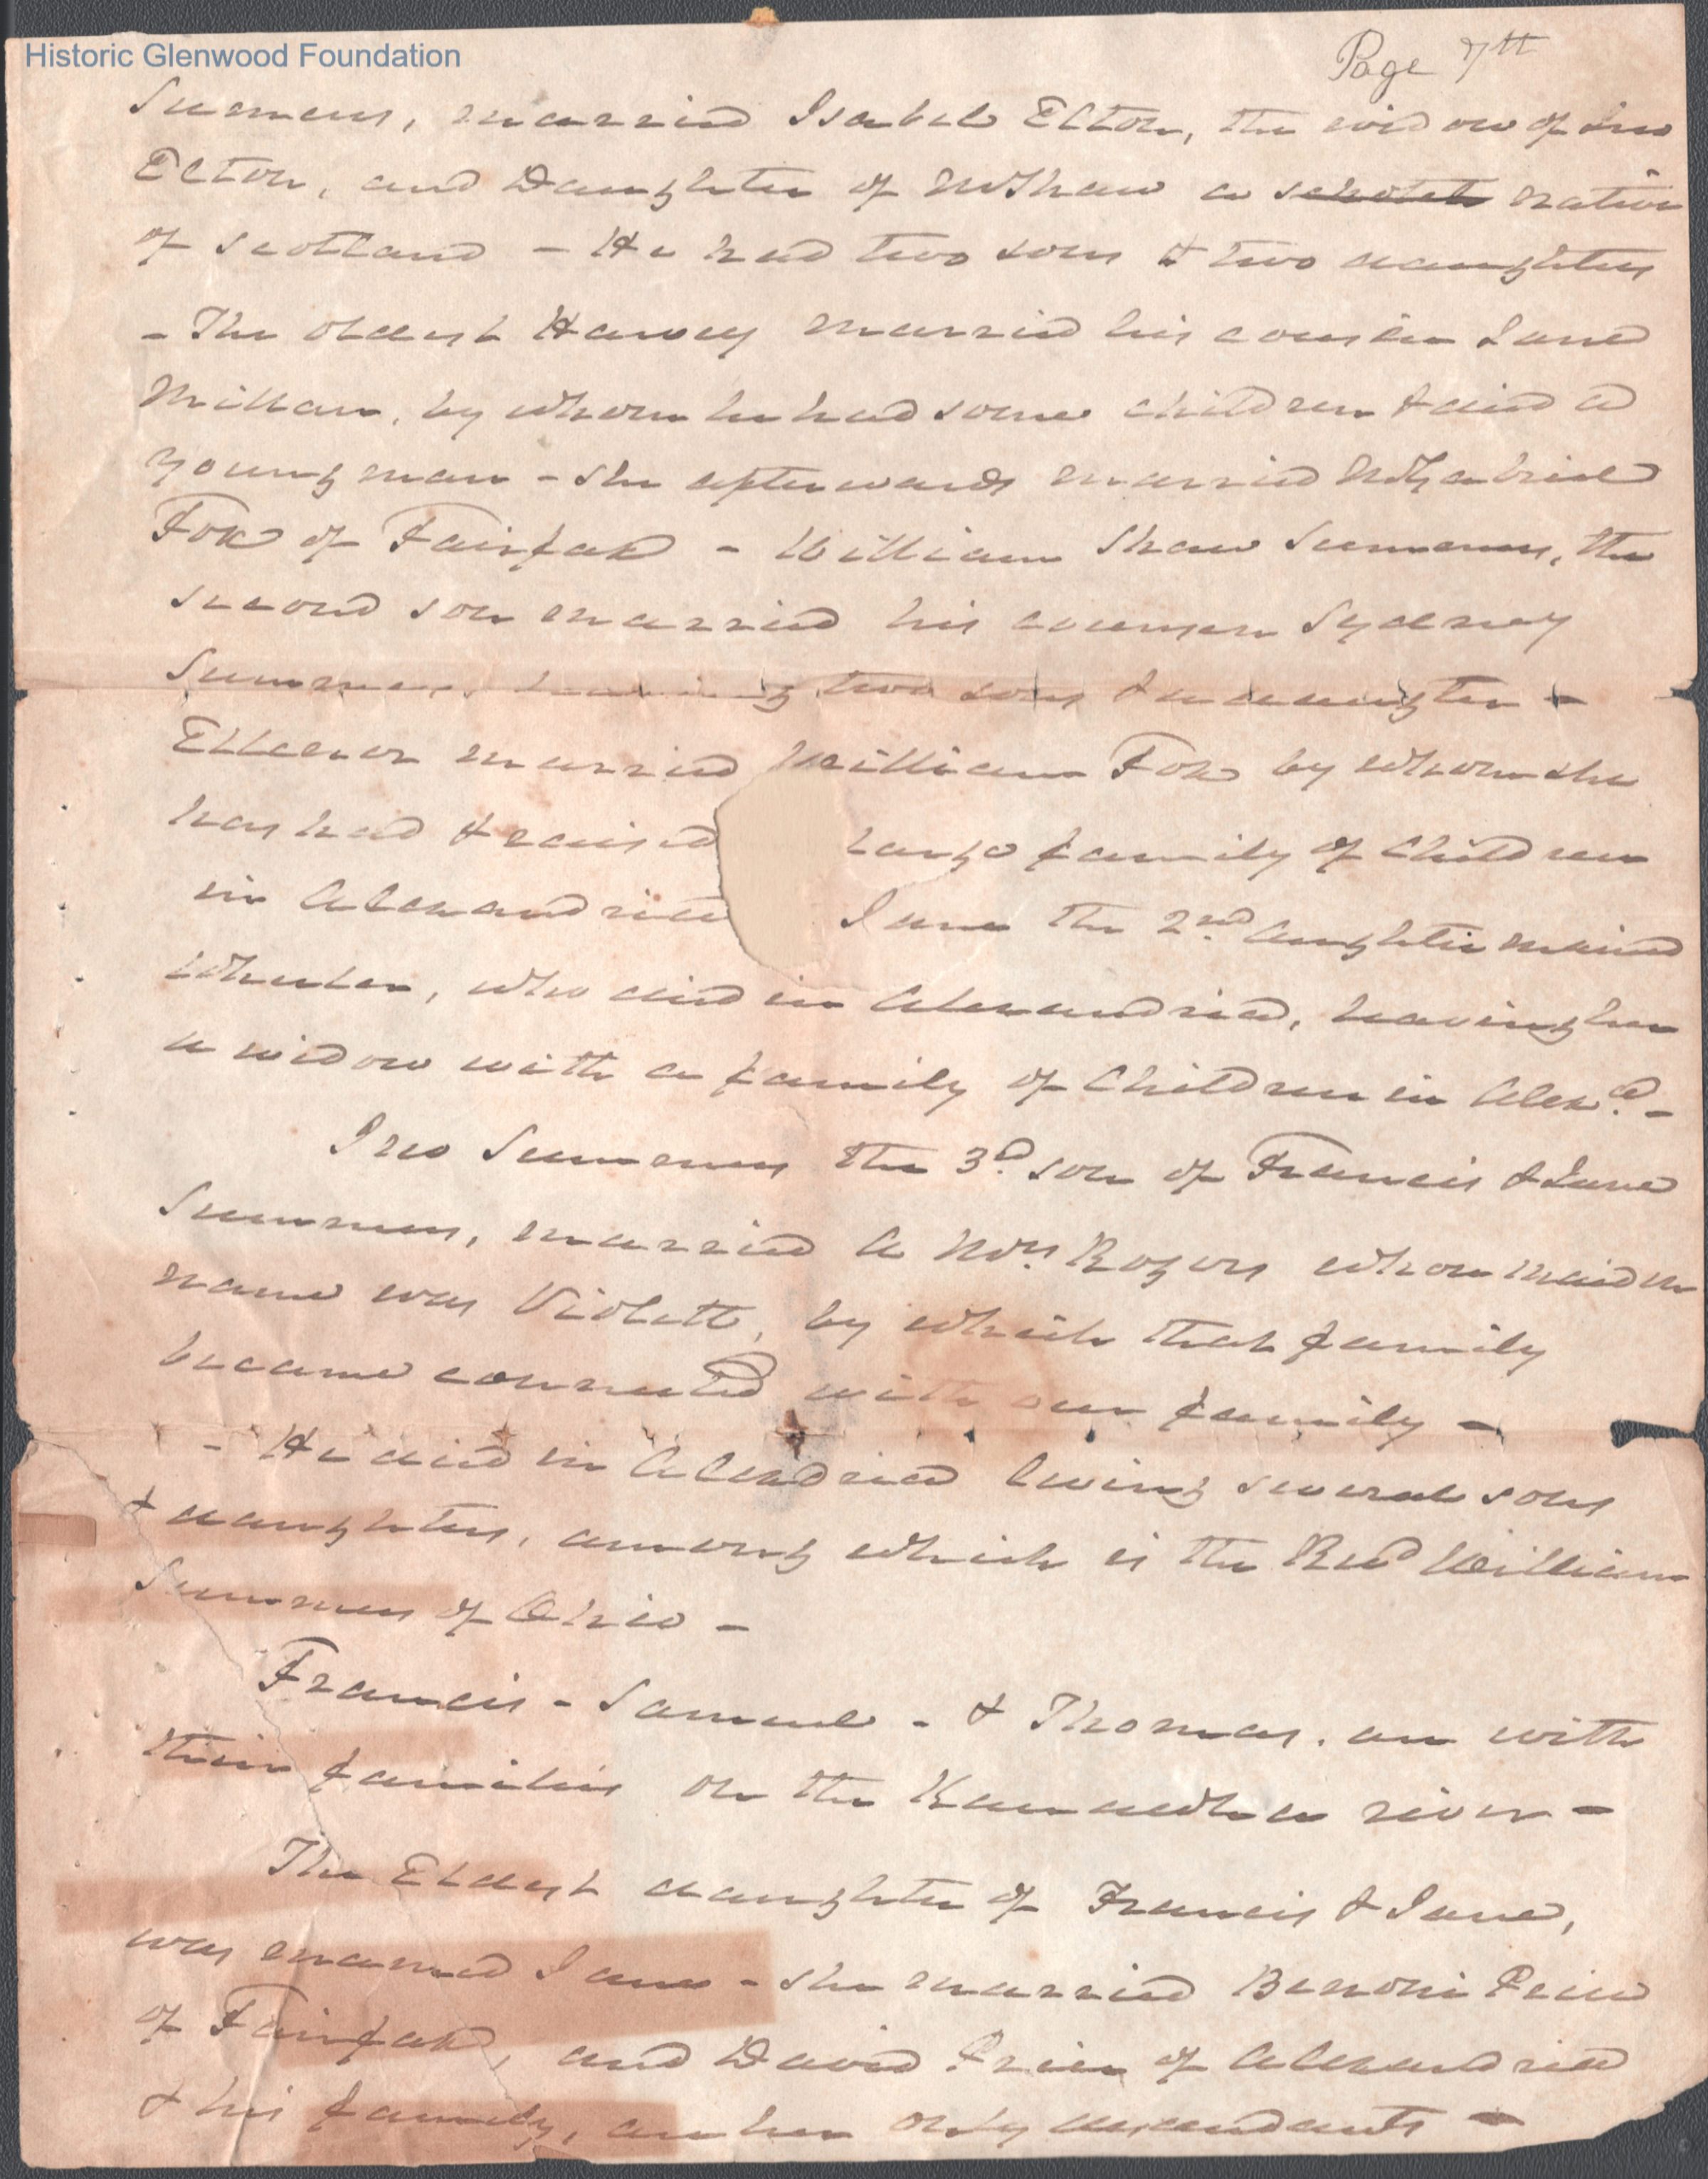 Historic Glenwood Foundation
Page 7th
Summers, married Isabel Elton, the widow of Jno
Elton, and Daughter of Mr Shaw a schotch native
of Scotland - He had two sons & two daughters
- The oldest Harvey married his cousin Jane
Millan, by whom he had some children & died a
young man - she afterwards married Mr Gabriel
Fox of Fairfax - William Shaw Summers, the
second son married his counsen Sydney
Summers, leaving two sons & a daughter -
Elleanor married William Fox by whom she
has had & raised large family of Children
in Alexandria Jane the 2nd daughter maried
Wheeler, who died in Alexandria, leaving her
a widow with a family of Children in Alexa. -
Jno Summers the 3d son of Francis & Jane
Summers, married a Mrs. Rogers whose maiden
name was Violett, by which that family
became connected with our family -
- He died in Alexdria leving several sons
& daughters, among which is the Revd William
Summers of Ohio -
Francis - Samuel - & Thomas. are with
their families on the Kanawha river -
The Eldest daughter of Francis & Jane,
was named Jane - she married Benoni Price
of Fairfax, and David Price of Alexandria
& his family, are her only descendants -